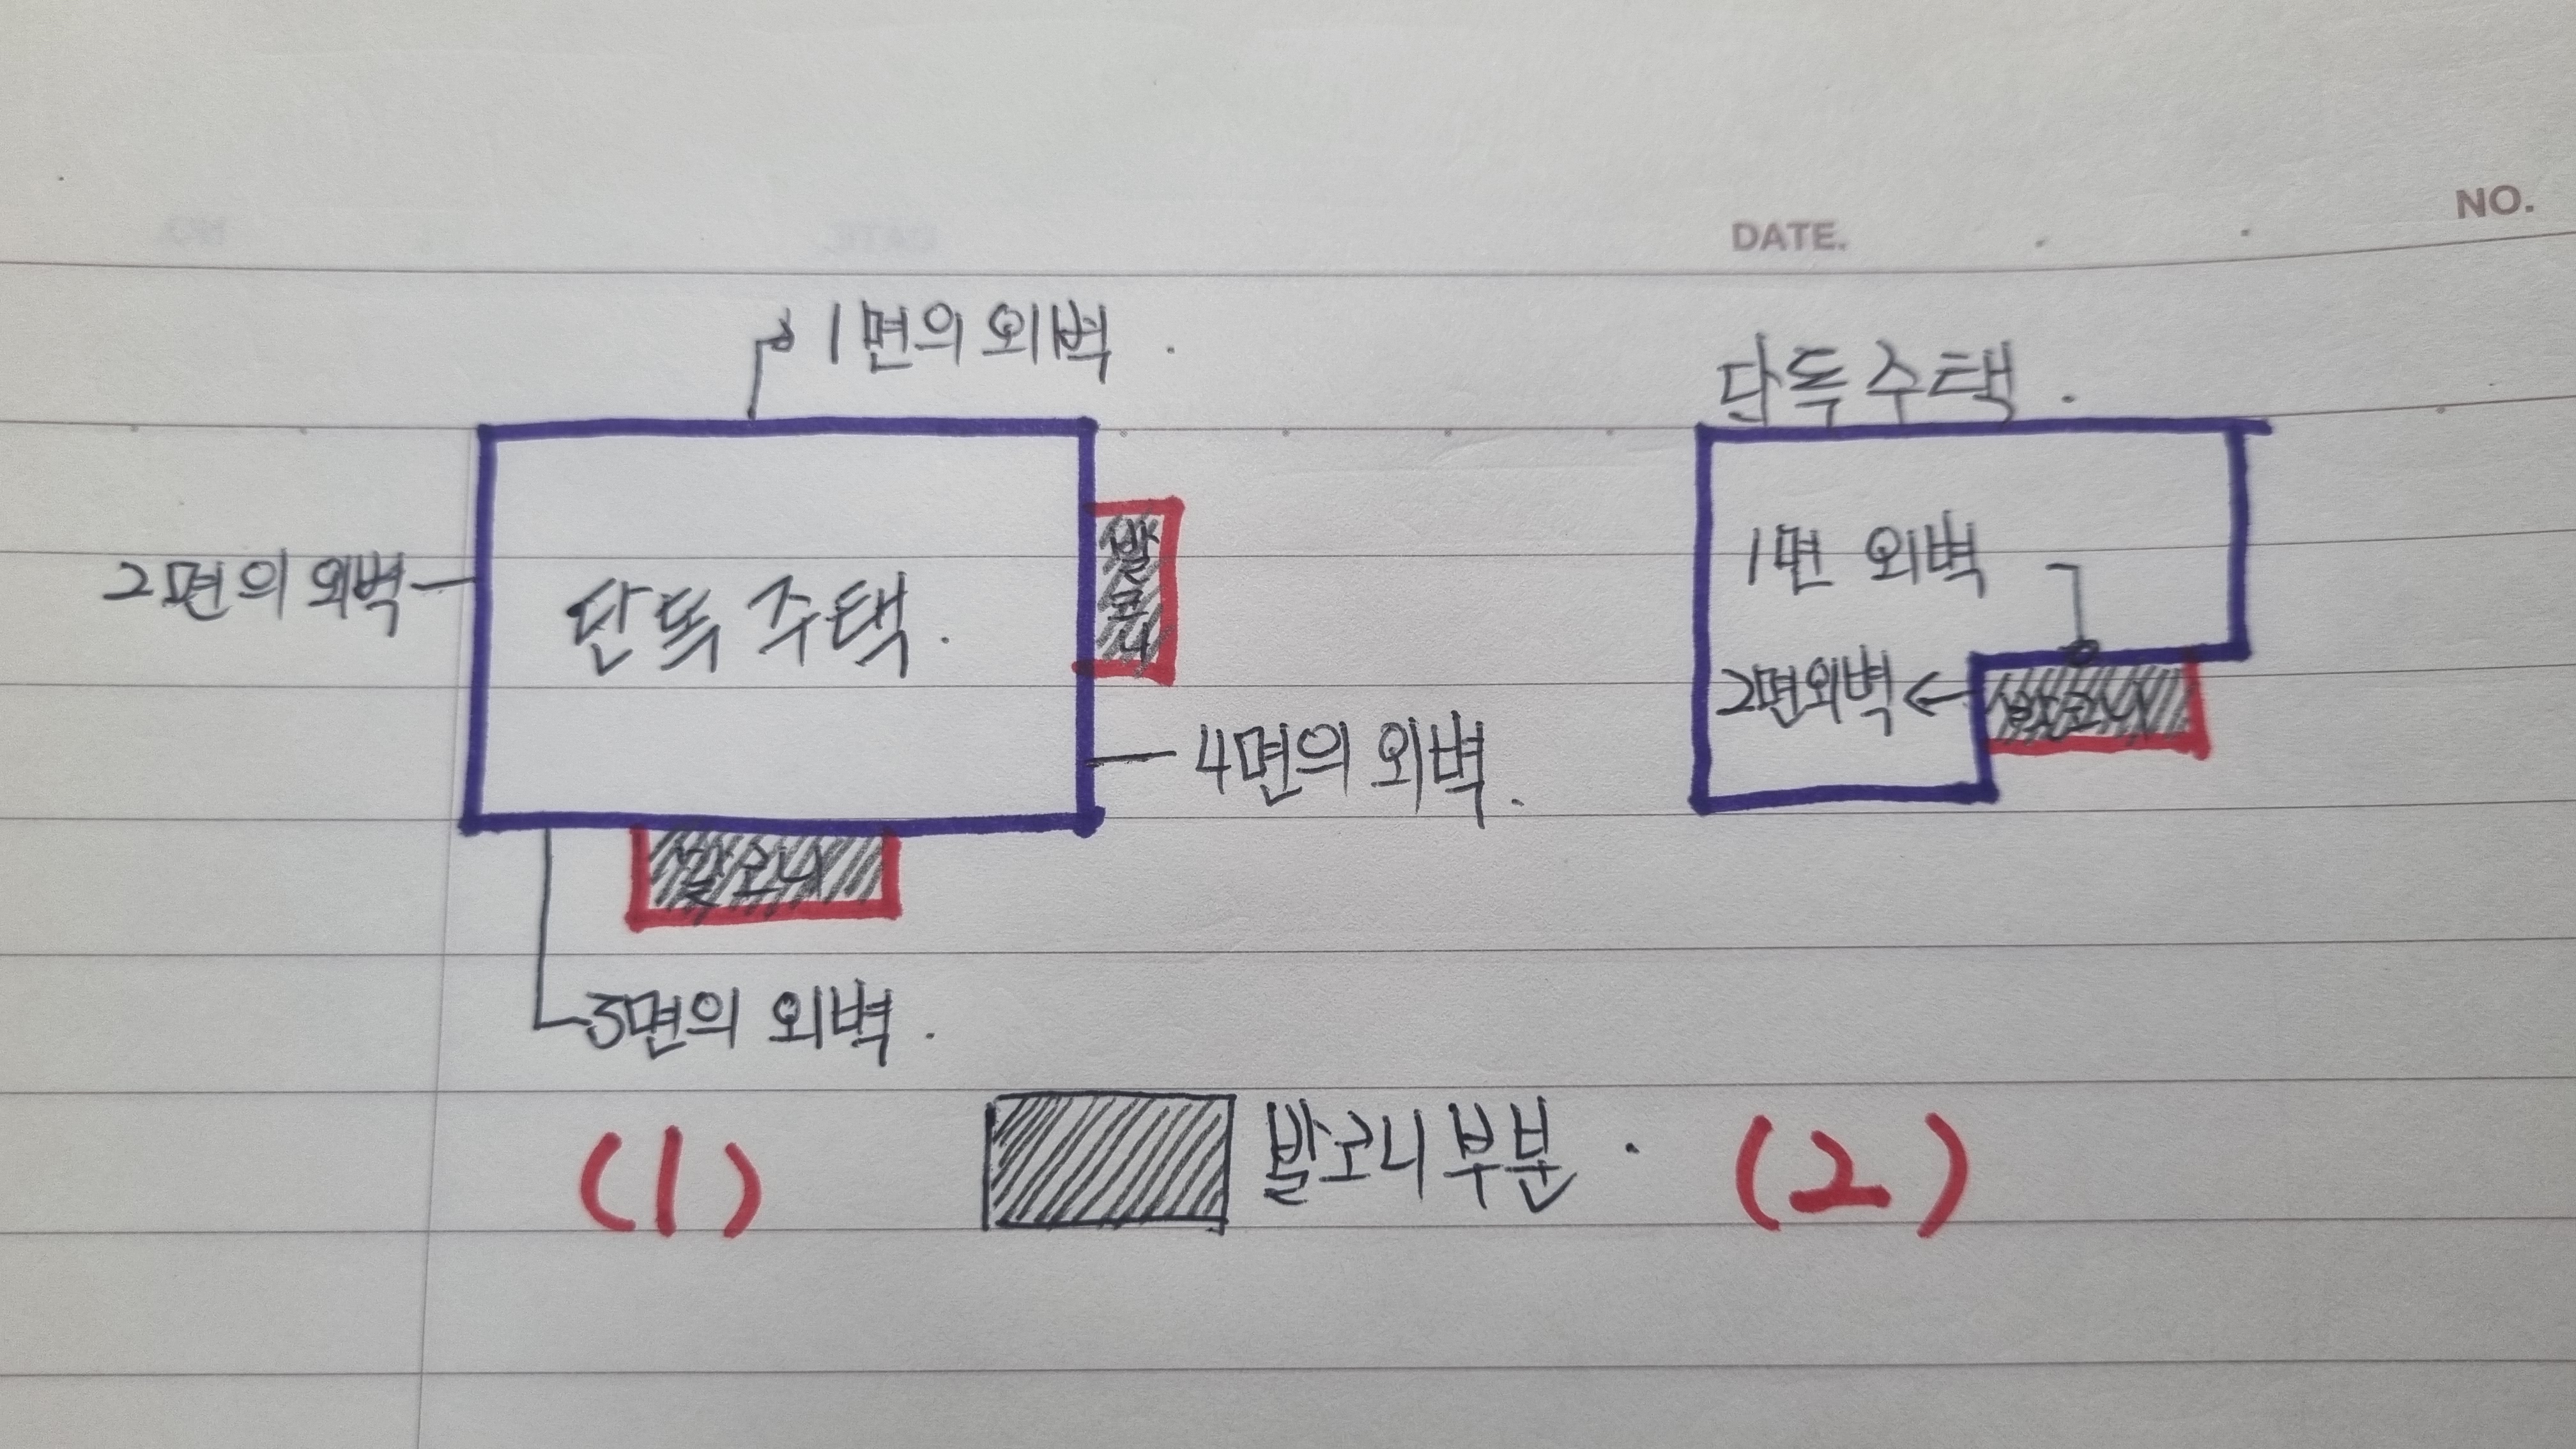 NO.
DATE.
1면의 외벽.
단독주택.
2면의 외벽
단독 주택.
발코니
1면 외벽
2면외벽
발코니
4면의 외벽.
발코니
3면의 외벽.
(1)
발코니 부분.
(2)